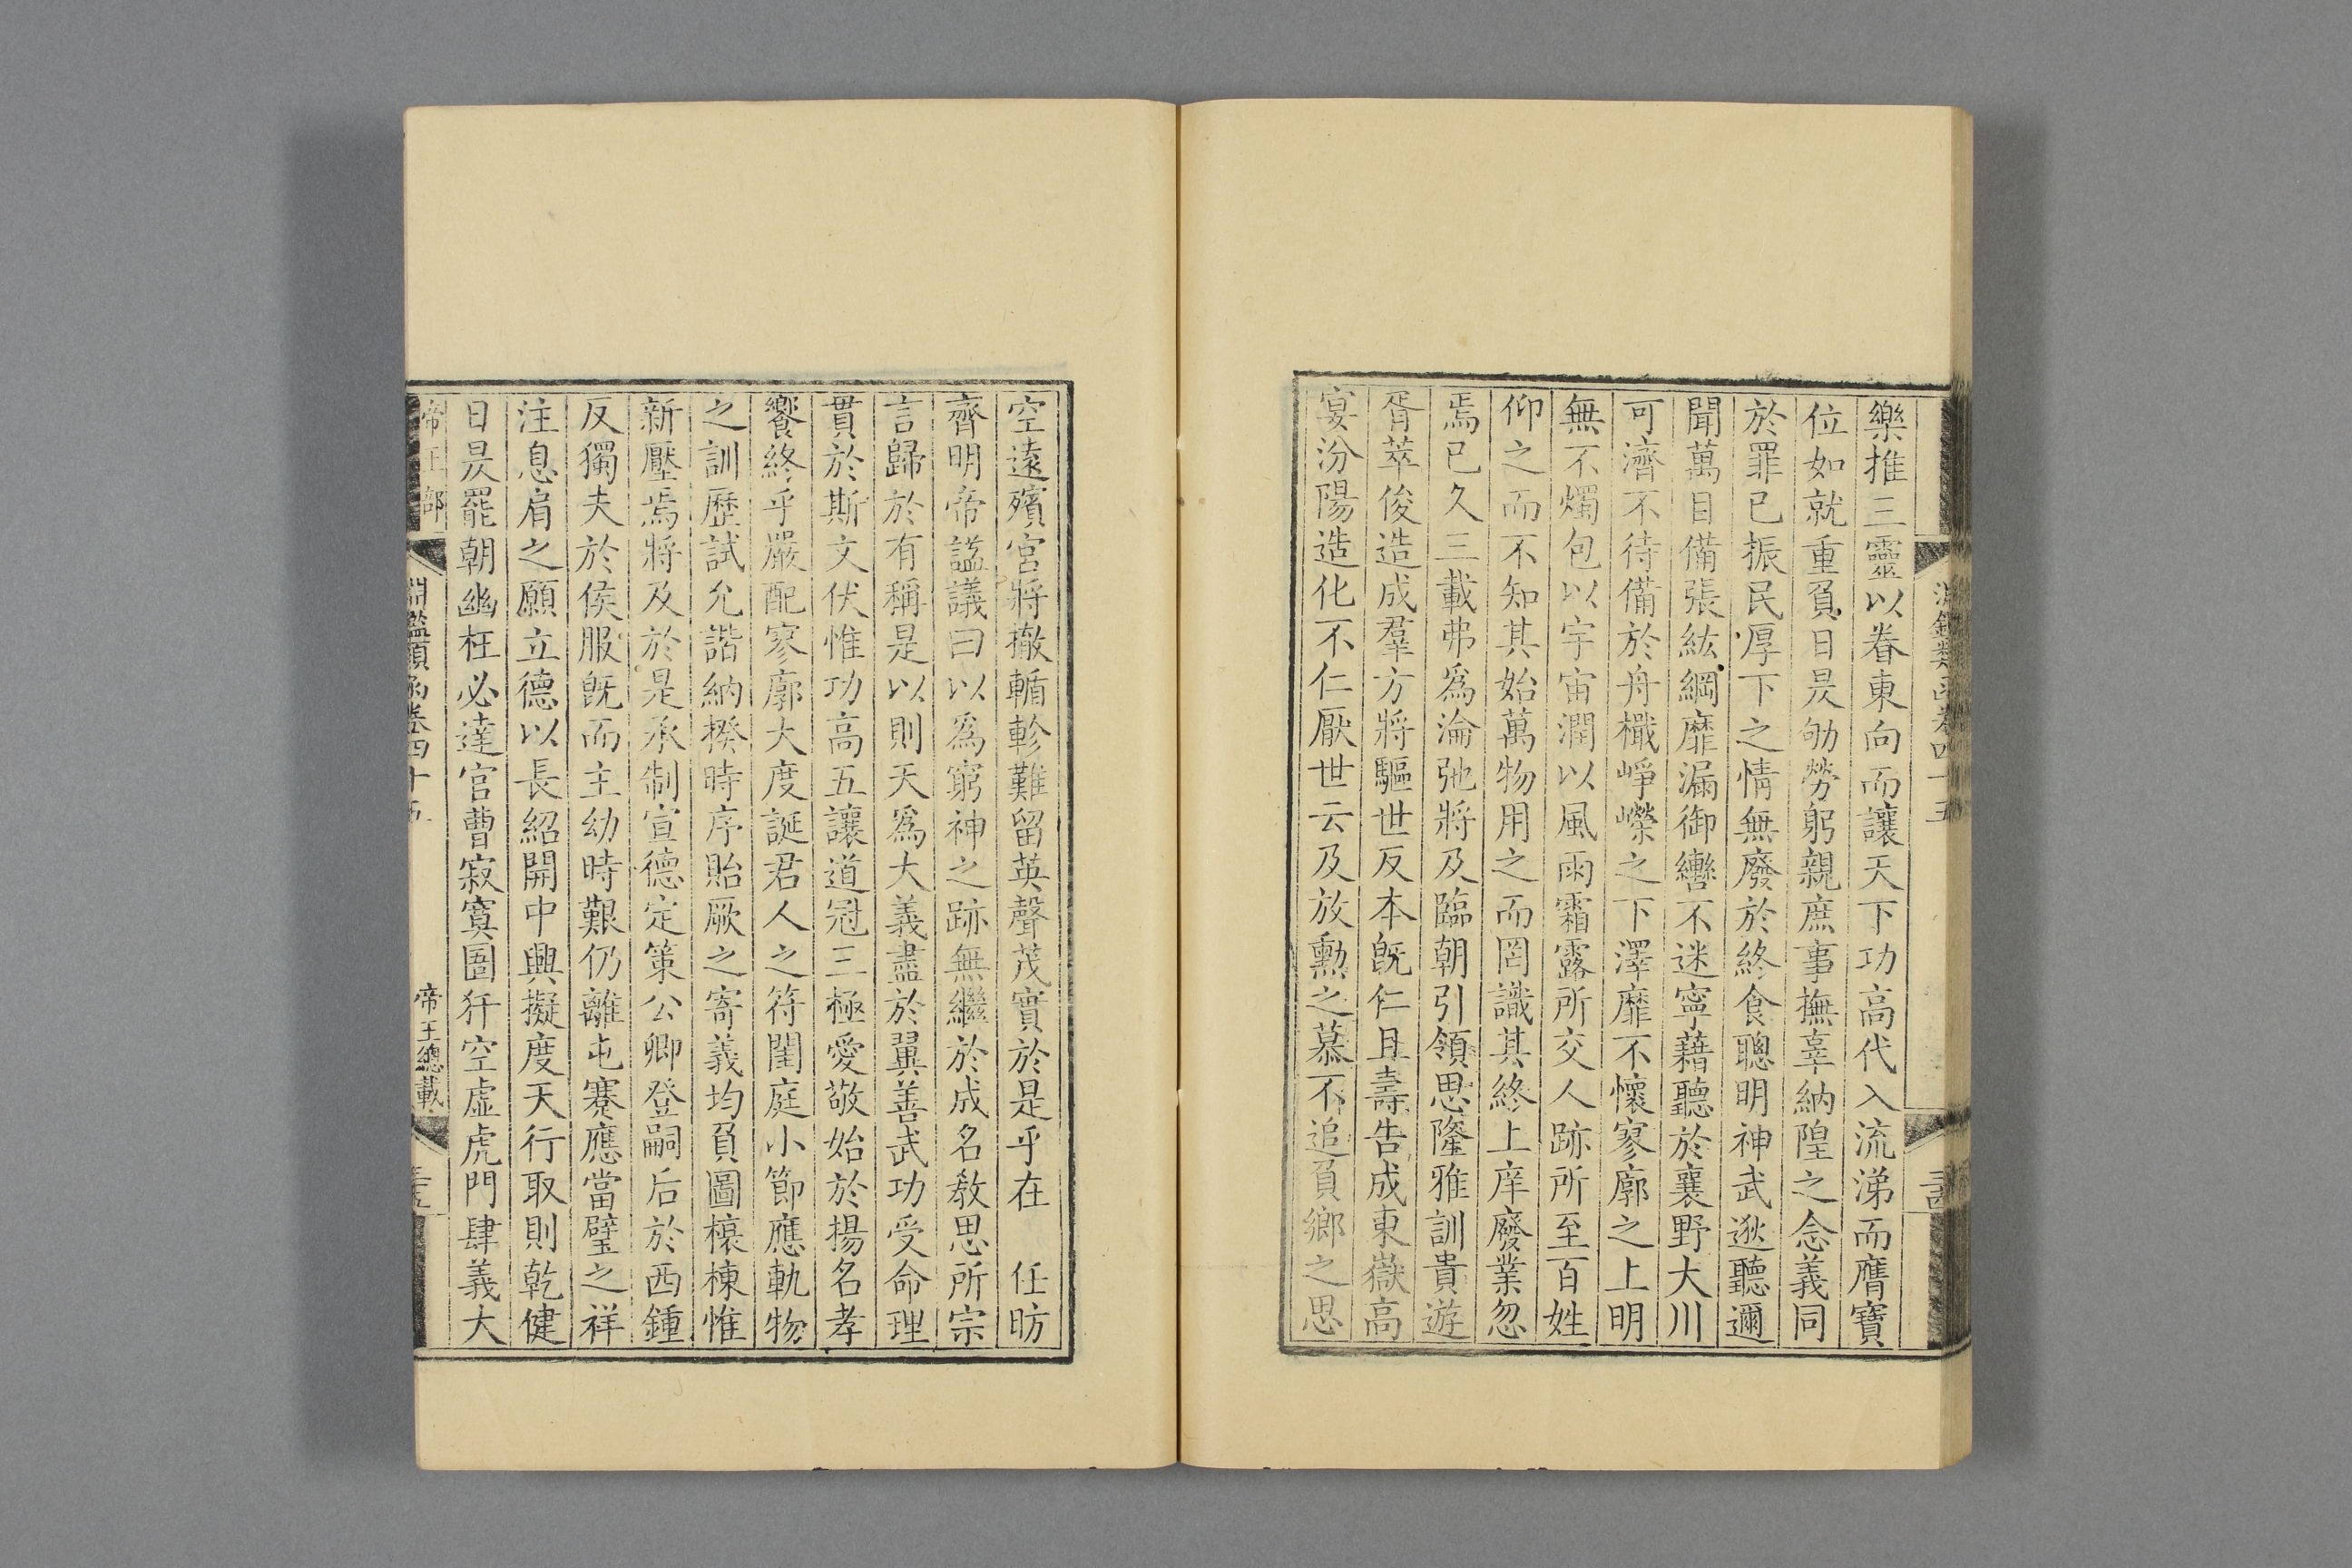 淵鑑類函卷四十五
樂推三靈以眷東向而讓天下功高代入流涕而膺寶
位如就重負日昃劬勞躬親庶事撫辜納隍之念義同
於罪已振民厚下之情無廢於終食聰明神武逖聽邇
聞萬目備張紘綱靡漏御轡不迷寧藉聽於襄野大川
可濟不待備於舟檝崢嶸之下澤靡不懷寥廓之上明
無不燭包以宇宙潤以風雨霜露所交人跡所至百姓
仰之而不知其始萬物用之而罔識其終上庠廢業忽
焉已久三載弗爲淪弛將及臨朝引領思隆雅訓貴遊
胥萃俊造成羣方將驅世反本旣仁且壽告成東嶽高
宴汾陽造化不仁厭世云及放勳之慕不追負鄉之思
空遠殯宮將撤輴軫難留英聲茂實於是乎在　任昉
齊明帝諡議曰以爲窮神之跡無繼於成名敎思所宗
言歸於有稱是以則天爲大義盡於翼善武功受命理
貫於斯文伏惟功高五讓道冠三極愛敬始於揚名孝
饗終乎嚴配寥廓大度誕君人之符閨庭小節應軌物
之訓歷試允諧納揆時序貽厥之寄義均負圖榱棟惟
新壓焉將及於是承制宣德定策公卿登嗣后於西鍾
反獨夫於侯服旣而主幼時艱仍離屯蹇應當璧之祥
注息肩之願立德以長紹開中興擬度天行取則乾健
日昃罷朝幽枉必達官曹寂寞圄犴空虛虎門肆義大
帝王部
淵鑑類函卷四十五
帝王總載